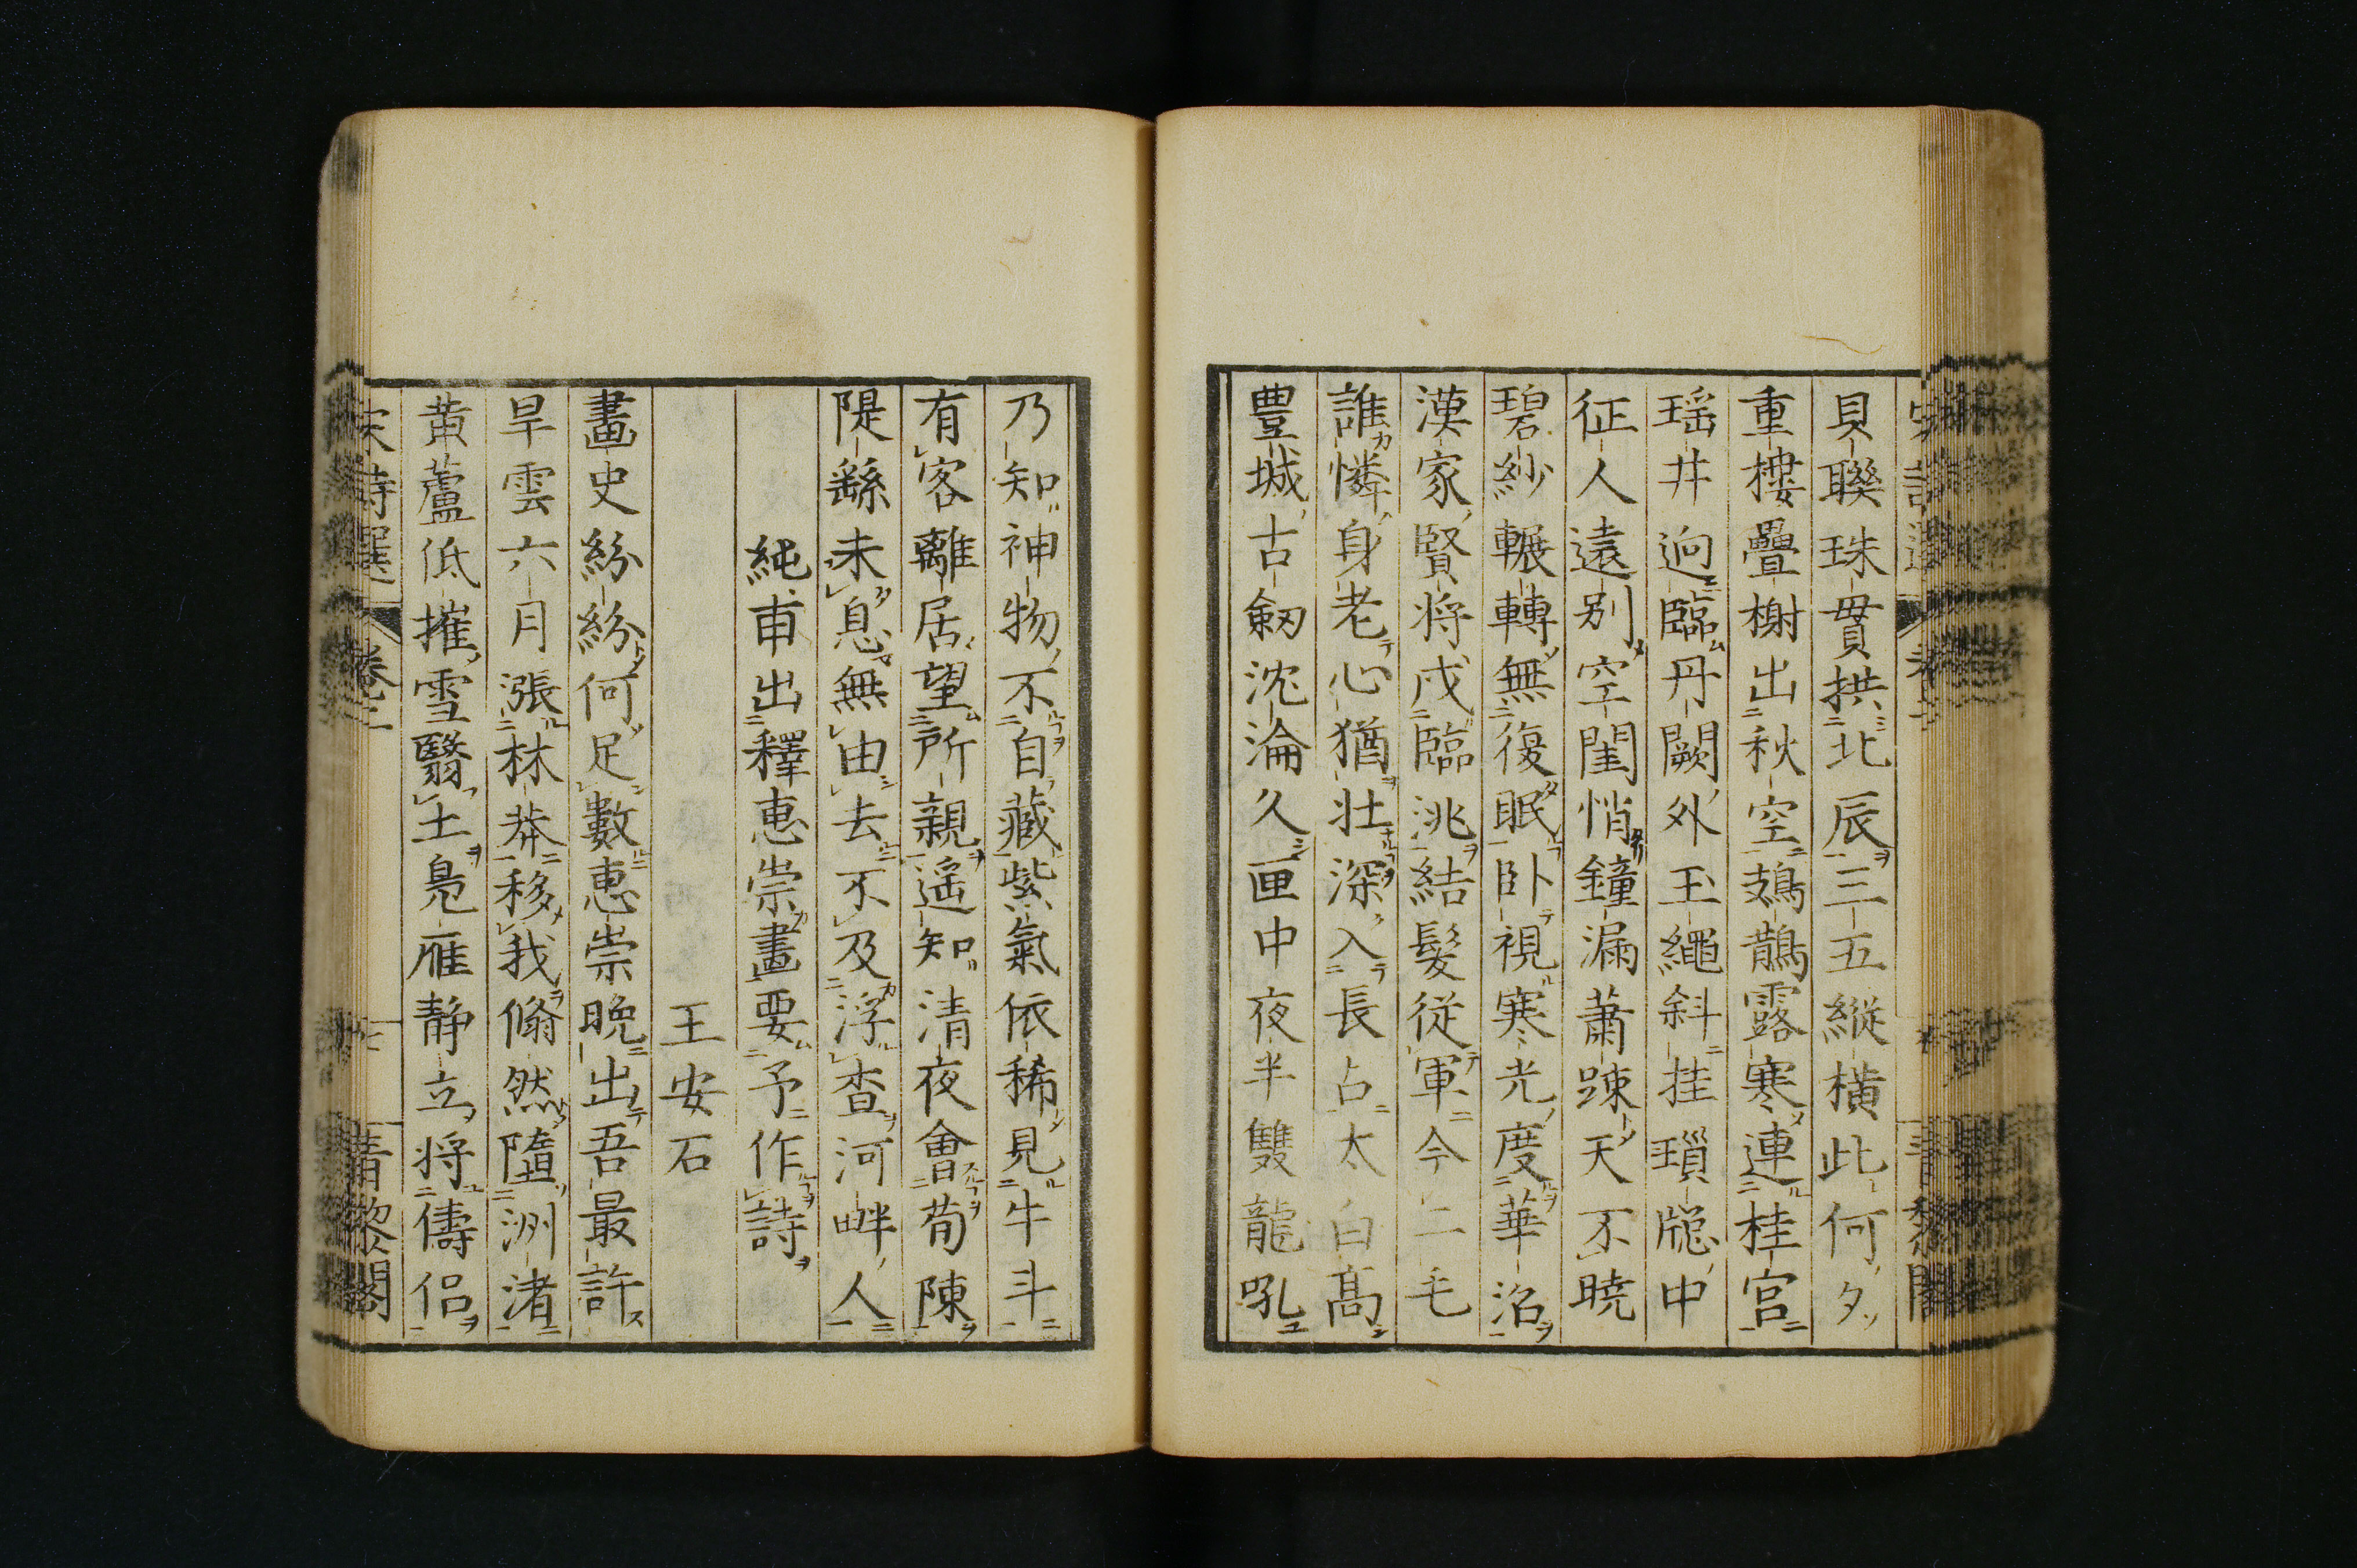 貝聯珠貫拱北辰三五縱橫此何夕
重樓疊榭出秋空鳷鵲露寒連桂宮
瑶井逈臨丹闕外玉繩斜挂瑣牕中
征人遠别空閨悄鐘漏蕭踈天不曉
碧紗輾轉無復眠卧視寒光度華沼
漢家賢将戍臨洮結髮從軍今二毛
誰憐身老心猶壮深入長占太白高
豊城古劒沈淪久匣中夜半雙龍吼
乃知神物不自藏紫氣依稀見牛斗
有客離居望所親遥知清夜會荀陳
隄繇未息無由去不及浮査河畔人
純甫出釋惠崇畫要予作詩
王安石
畫史紛紛何足數惠崇晩出吾最許
旱雲六月漲林莽移我翛然墮洲渚
黄蘆低摧雪翳土鳬雁静立将儔侣
宋詩選 卷之二 青黎閣